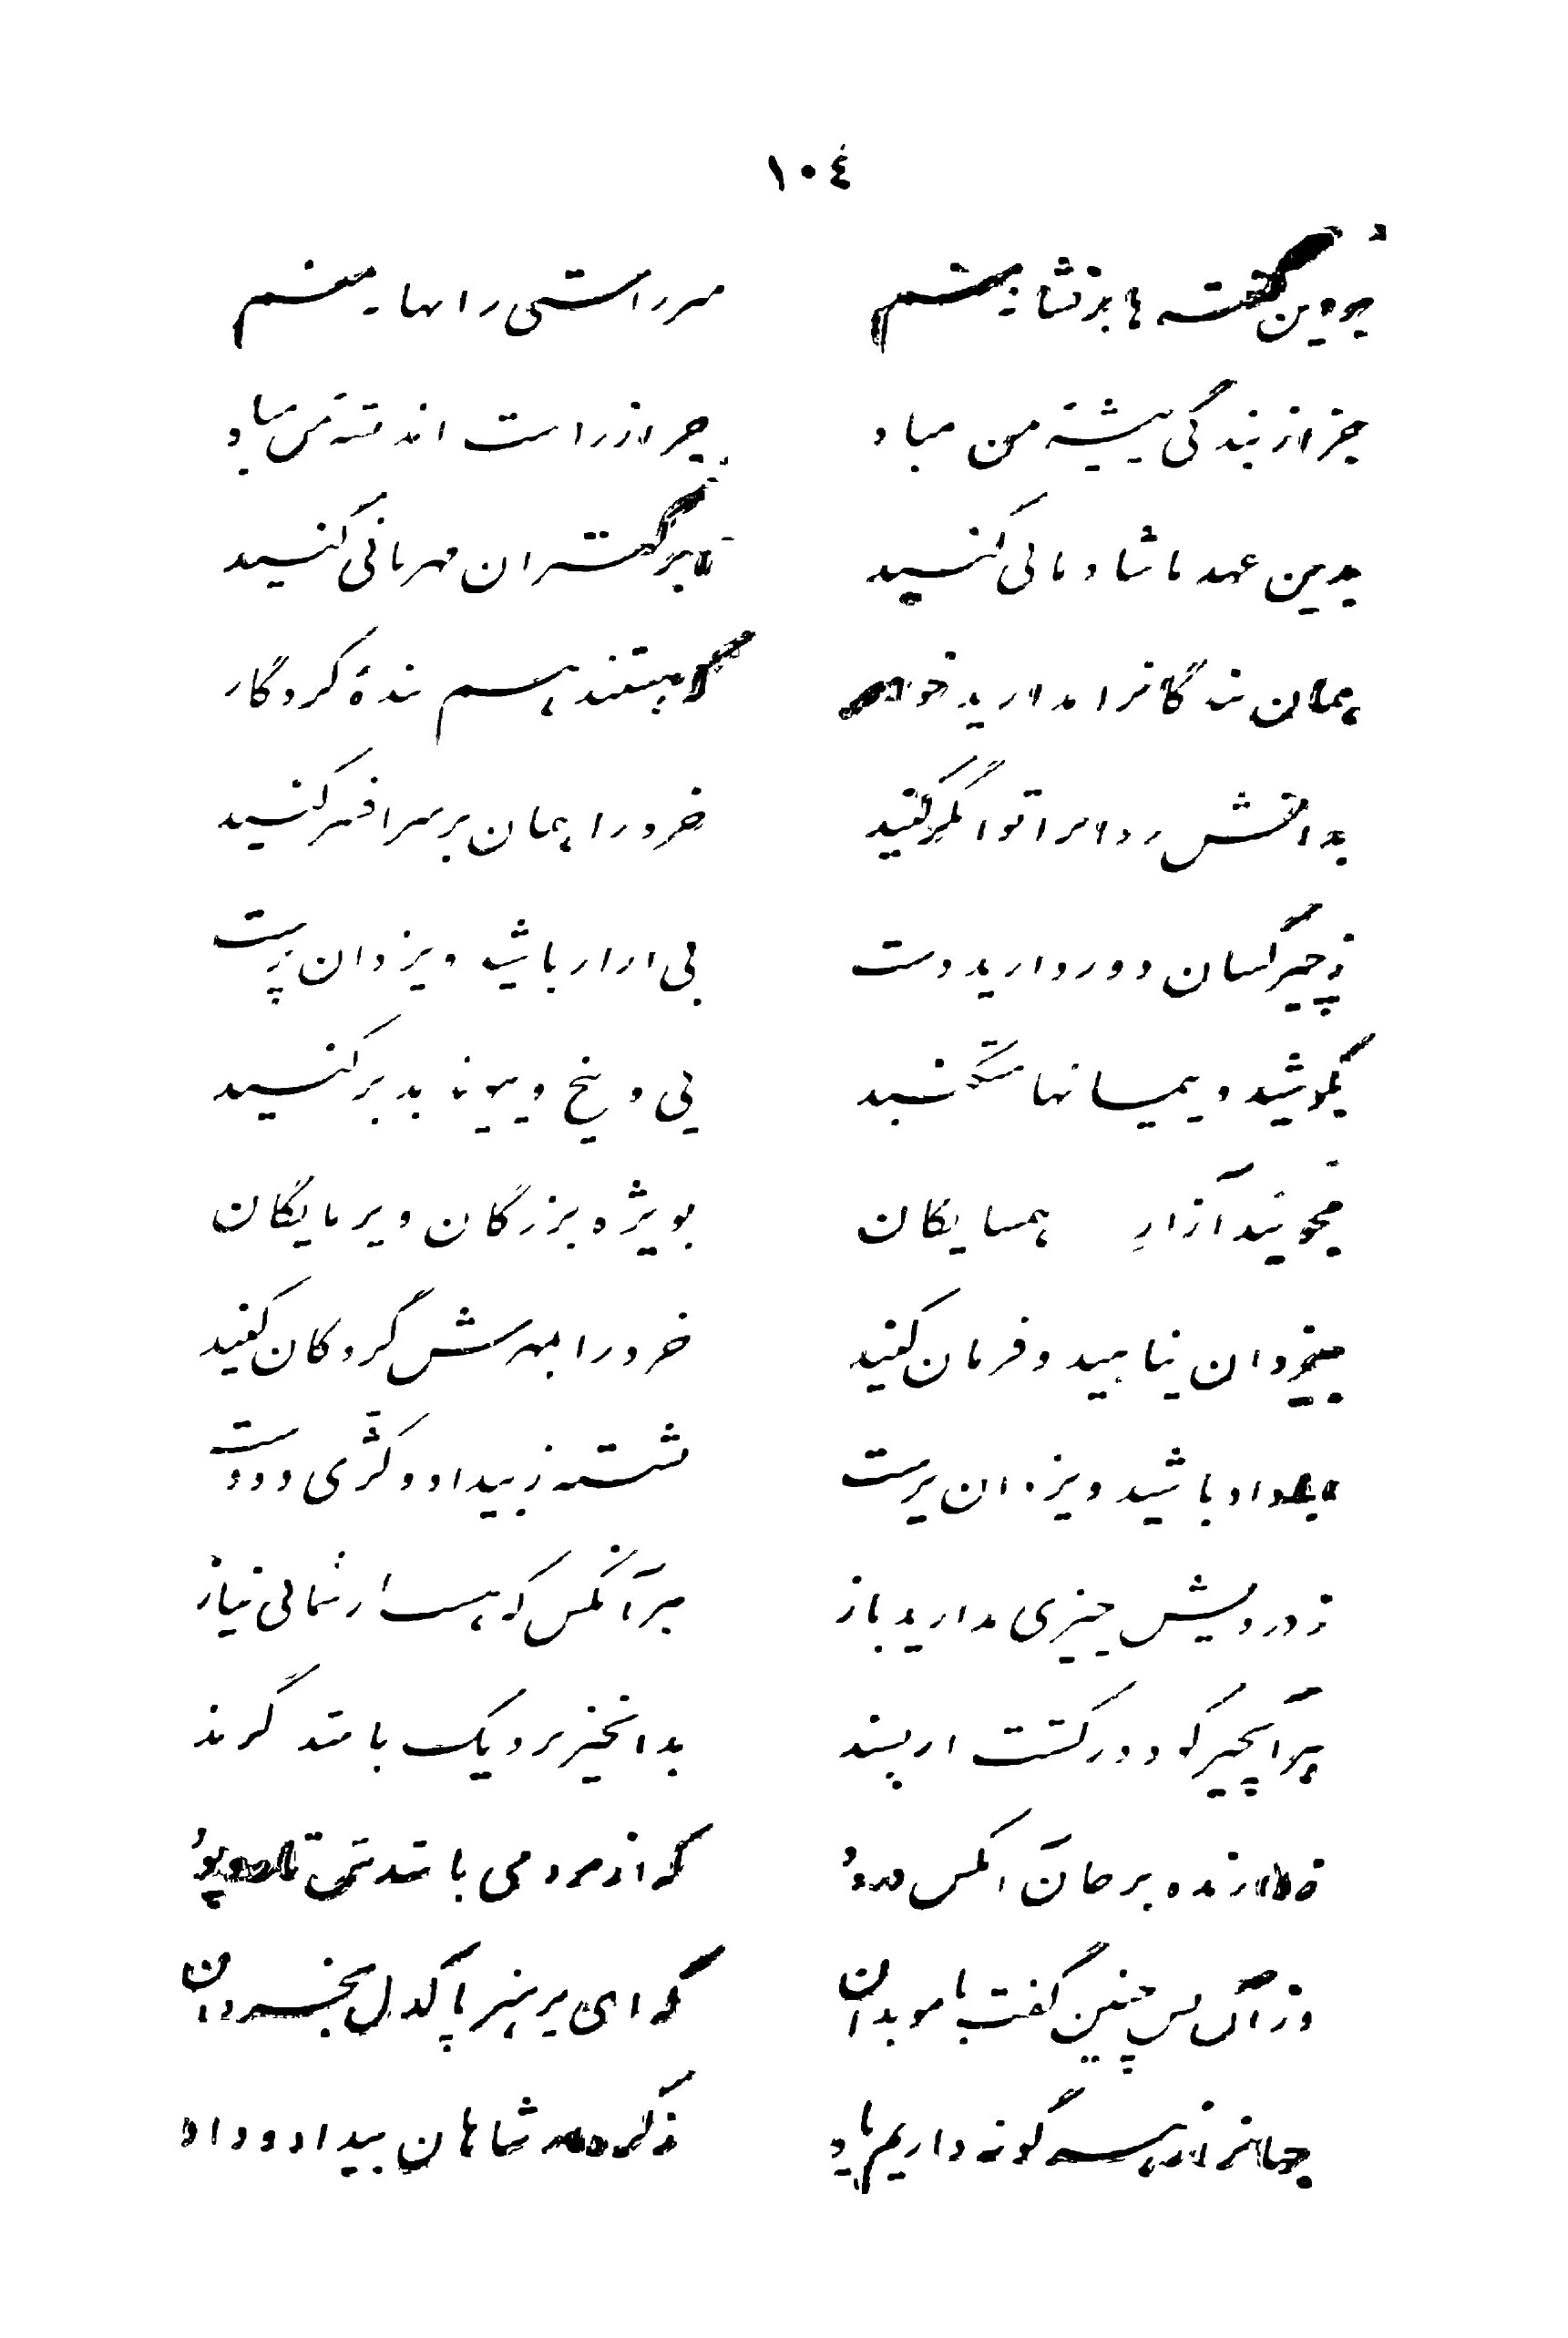 ١٠٤
بدین گفته ها بر نشا نیستم سر راستی را بها نیستم
جز از بندگی پیشهٔ من مباد جز از راست اندیشهٔ من مباد
بدین عهد ما شادمانی کنید بر کهتران مهربانی کنید
همان بندگانرا مدارید خوار که هستند هم بندهٔ کردگار
بدانش روانرا توانگر کنید خرد را همان بر سر افسر کنید
ز چیز کسان دور دارید دست بی آزار باشید و یزدان پرست
بکوشید و پیمانها مشکنید پی و بیخ و پیوند بد برکنید
مجوئید آزارِ همسایگان بویژه بزرگان و پرمایگان
بیزدان پناهید و فرمان کنید خرد را بمهرش گروگان کنید
بداد باشید و یزدان پرست شسته ز بیداد و کژی دو دست
ز درویش چیزی مدارید باز هر آنکس که هست از شما بی نیاز
هر آنچیز که دور گشت از پسند بدانچیز نزدیک باشد گزند
برجان آنکس درود که از مردمی باشدش تار و پود
وز آن پس چنین گفت با موبدان که ای پر هنر پاکدل بخردان
جهانرا گونه داریم یاد ز کردار شاهان بیداد و داد